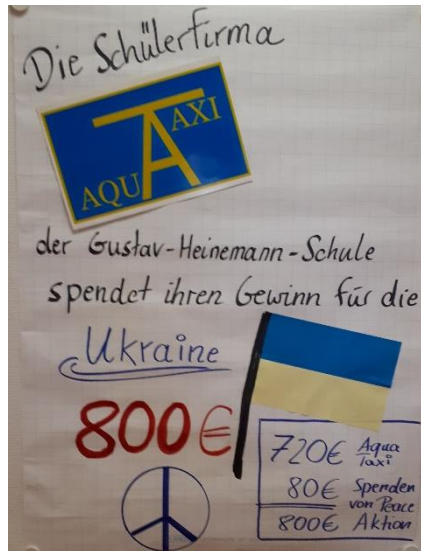 Die Schülerfirma
AQUA TAXI
der Gustav-Heinemann-Schule
spendet ihren Gewinn für die
Ukraine
800€
720€ Aqua Taxi
80€ Spenden von Peace
800€ Aktion